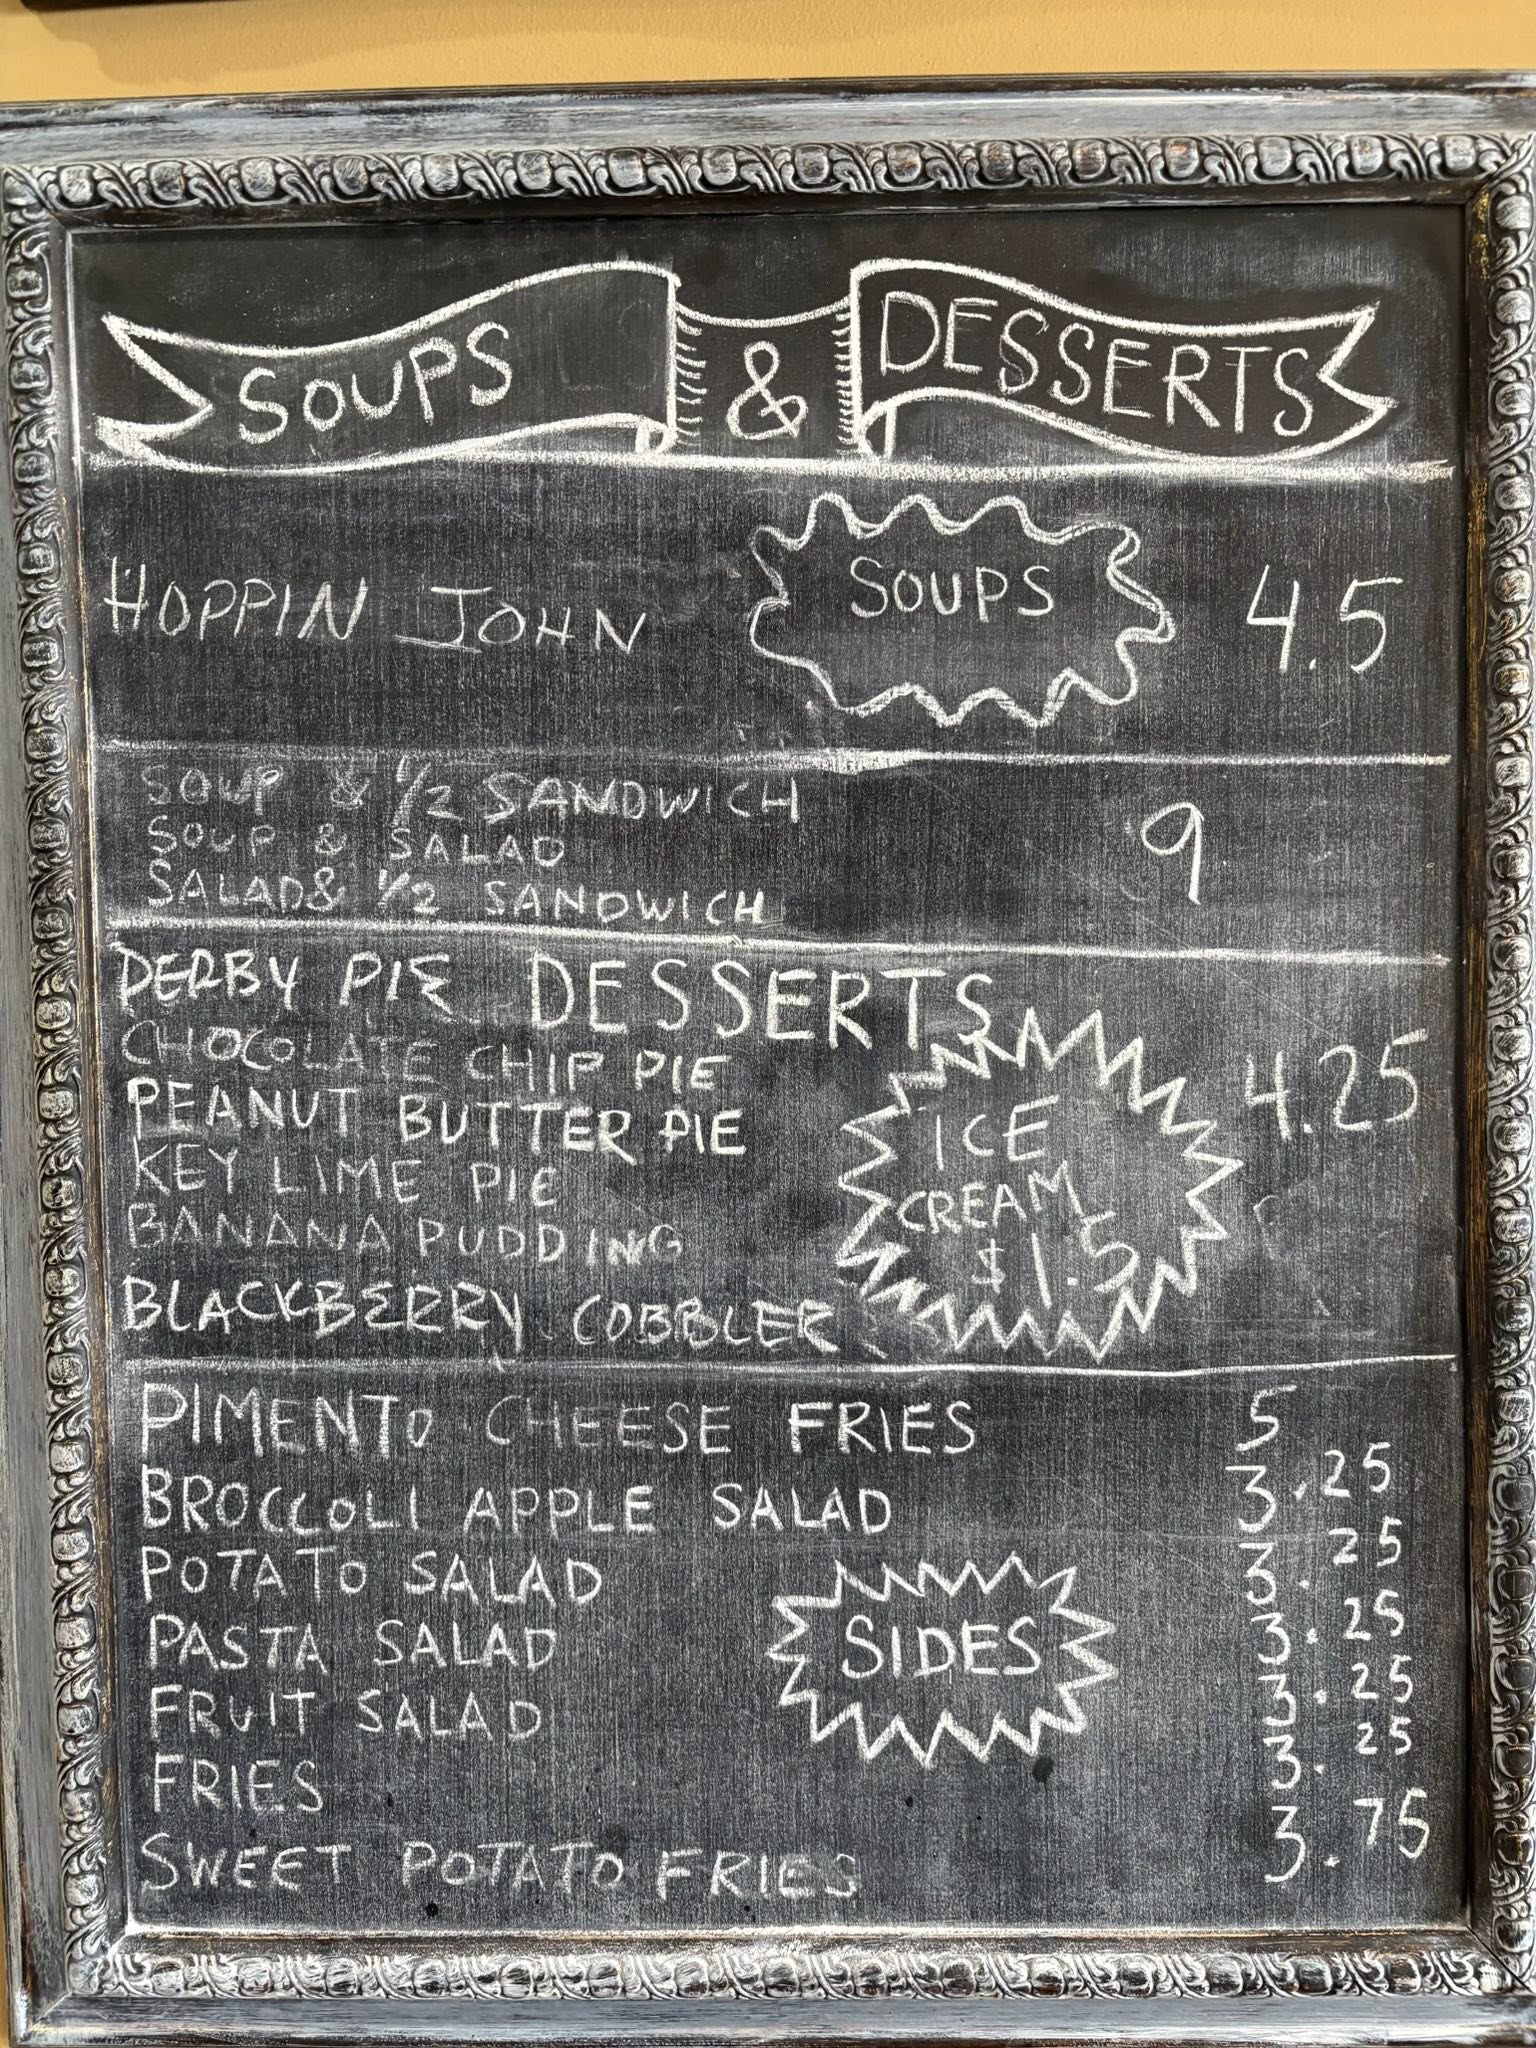 SOUPS & DESSERTS
HOPPIN JOHN SOUPS 4.5
SOUP & 1/2 SANDWICH
SOUP & SALAD 9
SALAD & 1/2 SANDWICH
DERBY PIE DESSERTS
CHOCOLATE CHIP PIE 4.25
PEANUT BUTTER PIE
KEY LIME PIE
BANANA PUDDING
BLACKBERRY COBBLER
ICE
CREAM
$1.5
PIMENTO CHEESE FRIES 5
BROCCOLI APPLE SALAD 3.25
POTATO SALAD 3.25
PASTA SALAD 3.25
FRUIT SALAD 3.25
FRIES 3.25
SWEET POTATO FRIES 3.75
SIDES